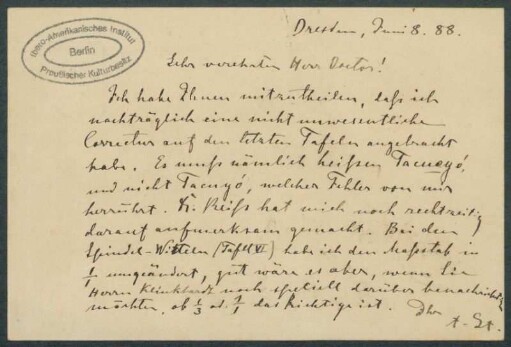 Ibero-Amerikanisches Institut
Berlin
Preußischer Kulturbesitz
Dresden, Juni 8. 88.
Sehr verehrter Herr Doctor!
Ich habe Ihnen mitzutheilen, daß ich
nachträglich eine nicht unwesentliche
Correctur auf den letzten Tafeln angebracht
habe. Es muß nämlich heißen Tacueyó,
und nicht Tacuyó, welcher Fehler von mir
herrührt. Dr. Reiß hat mich noch rechtzeitig
darauf aufmerksam gemacht. Bei den
Spindel-Wirteln (Tafel VI) habe ich den Maßstab in
1/1 umgeändert, gut wäre es aber, wenn Sie
Herrn Klinkhardt noch speciell darüber benachrichtigen
möchten, ob 1/3 od. 1/1 das Richtige ist. Ihr
A. St.